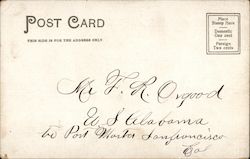 POST CARD
THIS SIDE IS FOR THE ADDRESS ONLY
Place
Stamp Here
Domestic
One cent
Foreign
Two cents
Mr F. R. Osgood
U S Alabama
Port Works Sanfrancisco